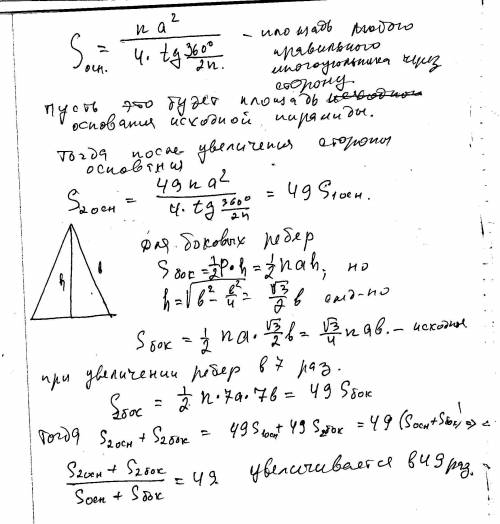 Sосн. = na² / (4 · tg 360°/2n) – площадь любого
правильного
многоугольника через
сторону
Пусть это будет площадь исходной
основания исходной пирамиды.
Тогда после увеличения стороны
основания
S2осн = 49na² / (4 · tg 360°/2n) = 49 S1осн.
Для боковых ребер
Sбок = ½P·h = ½nah, но
h = √(b² – b²/4) = √3/2 b след-но
Sбок = ½ na · √3/2 b = √3/4 nab. – исходная
h
при увеличении ребер в 7 раз.
S2бос = ½ · n · 7a · 7b = 49 Sбок
Тогда S2осн + S2бок = 49S1осн + 49 S2бок = 49 (Sосн + Sбок) ⇒
(S2осн + S2бок) / (Sосн + Sбок) = 49 увеличивается в 49 раз.